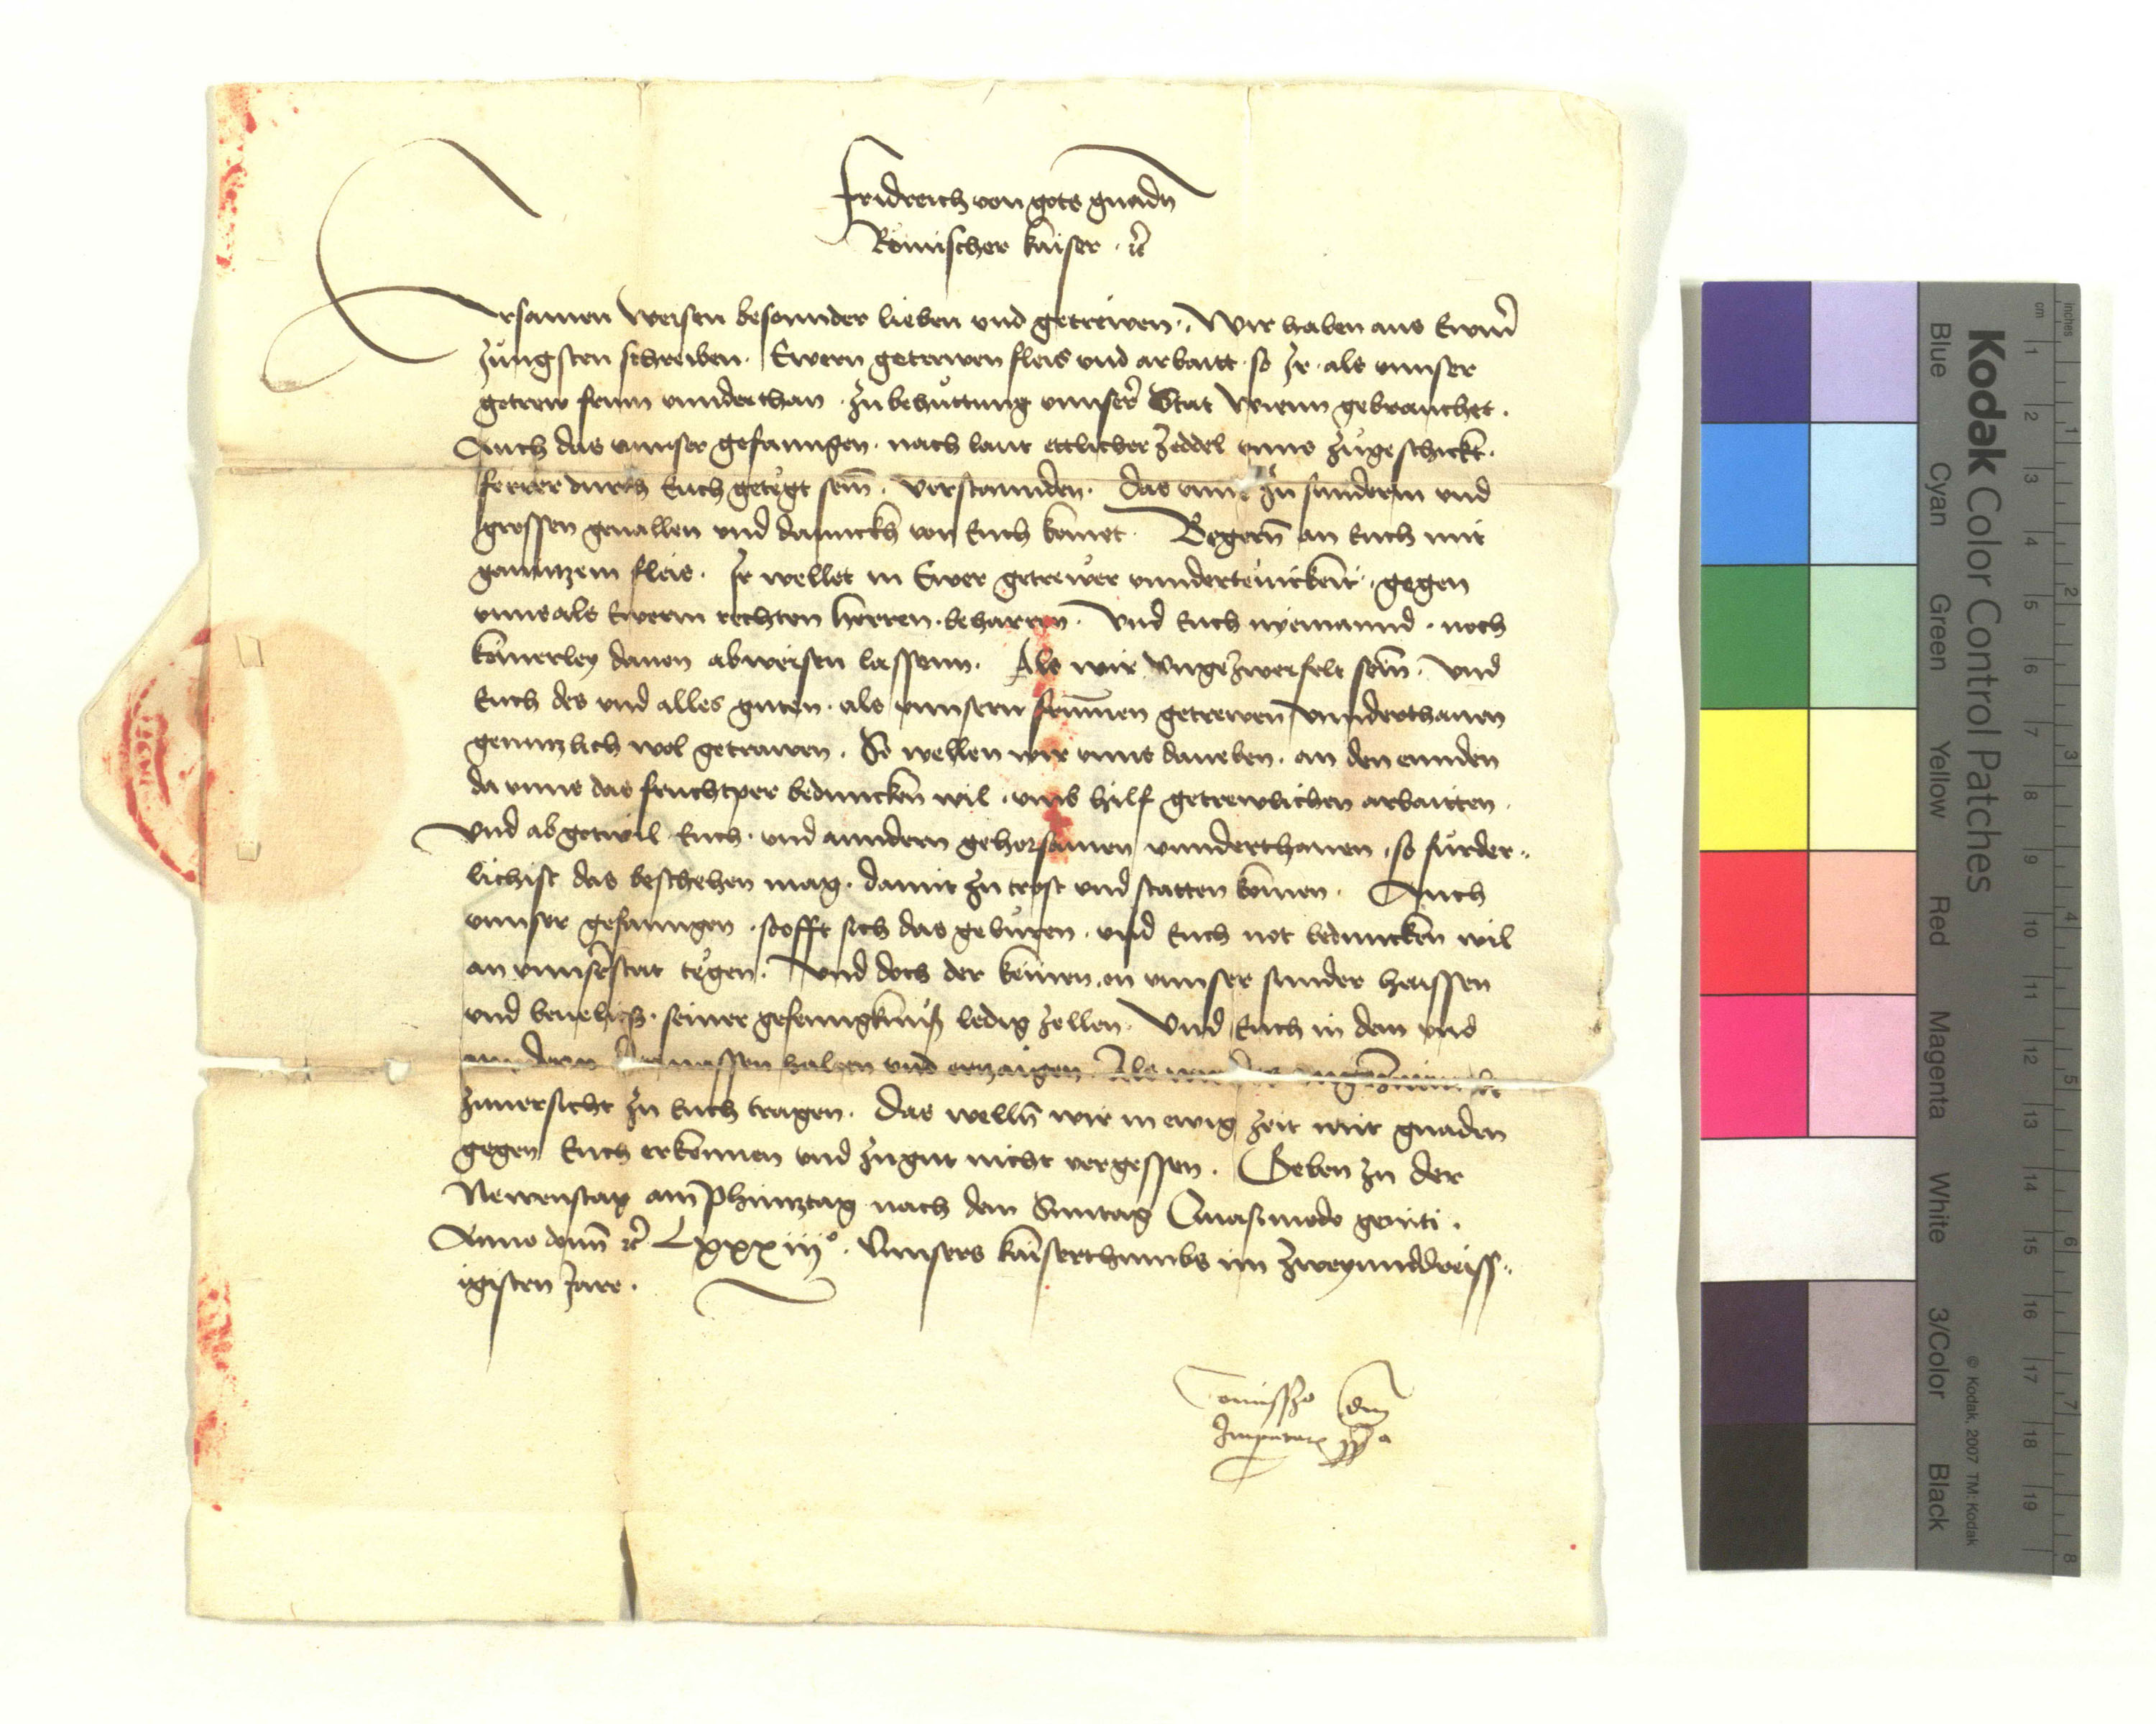 Fridreich von gots gnadn
Römischer kaiser · etc
Ersamen Weisen besonnder lieben und getrewen · Wir haben aus Ewrm
jungsten schreiben · Ewern getrewen fleis und arbaitt · so Jr · als unnser
getrew frum unnderthan · zu behuttung unnserr Stat Wienn gebrauchet ·
Auch das unnser gefanngen · nach laut ettlicher zeddel unns zugeschickt ·
ferrer durch Euch getegt sein · verstannden · das unns zu sunderm und
grossen geuallen und dannckh von Euch komet · Begern an Euch mit
ganntzem fleis · Jr wellet in Ewer getrewer unndertenickeit · gegen
unns als Ewerm rechten herren · beharren · Und Euch nyemannd · noch
keinerley dauon abweisen lassenn · Als wir ungezweifelt sein · und
Euch des und alles guten · als unnsern frummen getrewen unnderthanen
genntzlich wol getrawen · So wellen wir unns daneben · an den ennden
da unns das fruchtper beduncken wil · umb hilf getrewlichen arbaitten ·
Und ab gotwil Euch · und anndern gehorsamen unnderthanen · so furder
lichist das beschehen mag · damit zu trost und statten komen · Auch
unnser gefanngen · so offt sich das geburen · und Euch not beduncken wil
an unnser stat tegen · Und doch der keinen · on unnser sunder haissen
und beuelhen · seiner gefenngknuß ledig zellen · Und Euch in dem und
anndern dermassen halten und ertzaigen · Als wir des
zuuersicht zu Euch tragen · Das welln wir in ewig zeit mit gnaden
gegen Euch erkennen und zu gut nicht vergessen · Geben zu der
Newenstat am Phintztag nach dem Sunntag Quasimodo geniti ·
Anno domini etc Lxxxiijo · Unnsers kaiserthumbs im zweyunddreiss
igisten Jare ·
Comissio dni
Imperatoris ppa
Kodak Color Control Patches
Blue Cyan Green Yellow Red Magenta White 3/Color Black
© Kodak, 2007 TM: Kodak
inches 1 2 3 4 5 6 7 8
cm 1 2 3 4 5 6 7 8 9 10 11 12 13 14 15 16 17 18 19